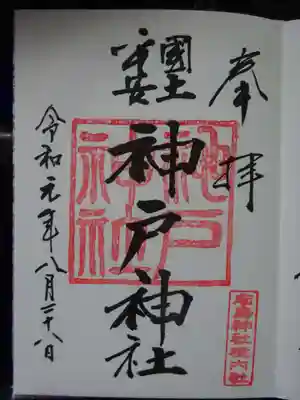 奉拝
國土
平安
神戸神社
神戸神社
令和元年八月二十八日
神社境内社